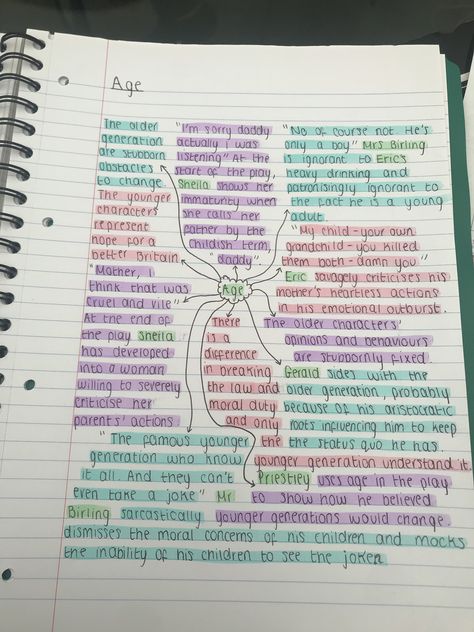 Age
The older
generation
are stubborn
obstacles
to change.
"I'm sorry daddy
actually I was
listening" At the
start of the play,
Sheila shows her
immaturity when
she calls her
father by the
childish term,
"daddy".
"No of course not He's
only a boy" Mrs Birling
is ignorant to Eric's
heavy drinking and
patronisingly ignorant to
the fact he is a young
adult.
The younger
characters
represent
hope for a
better Britain
"My child - your own
grandchild - you killed
them both - damn you"
Eric savagely criticises his
mother's heartless actions
in his emotional outburst.
Age
"Mather, I
think that was
cruel and vile"
At the end of
the play Sheila
has developed
into a woman
willing to severely
criticise her
parents' actions
There
is a
difference
in breaking
the law and
moral duty
and only
the
younger generation understand it.
The older characters'
opinions and behaviours
are stubbornly fixed.
Gerald sides with the
older generation, probably
because of his aristocratic
roots influencing him to keep
the status quo he has.
"The famous younger
generation who know
it all. And they can't
even take a joke" Mr
Birling sarcastically
dismisses the moral concerns of his children and mocks
the inability of his children to see the joke.
Priestley uses age in the play
to show how he believed
younger generations would change.